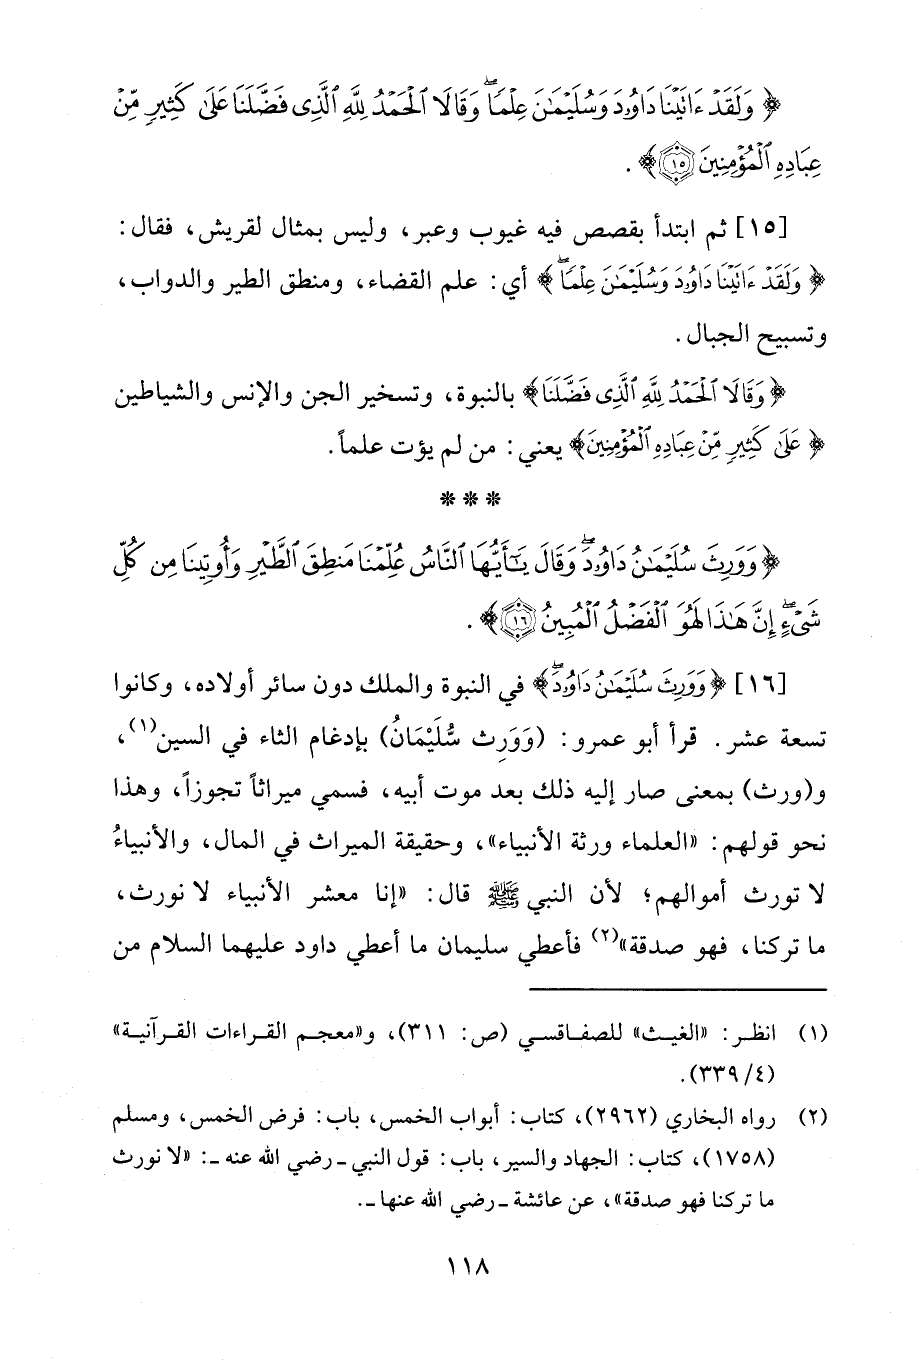 ﴿ وَلَقَدْ ءَاتَيْنَا دَاوُۥدَ وَسُلَيْمَٰنَ عِلْمًاۖ وَقَالَا ٱلْحَمْدُ لِلَّهِ ٱلَّذِى فَضَّلَنَا عَلَىٰ كَثِيرٍ مِّنْ
عِبَادِهِ ٱلْمُؤْمِنِينَ ١٥ ﴾ .
[١٥] ثم ابتدأ بقصص فيه غيوب وعبر، وليس بمثال لقريش، فقال:
﴿ وَلَقَدْ ءَاتَيْنَا دَاوُۥدَ وَسُلَيْمَٰنَ عِلْمًاۖ ﴾ أي: علم القضاء، ومنطق الطير والدواب،
وتسبيح الجبال.
﴿ وَقَالَا ٱلْحَمْدُ لِلَّهِ ٱلَّذِى فَضَّلَنَا ﴾ بالنبوة، وتسخير الجن والإنس والشياطين
﴿ عَلَىٰ كَثِيرٍ مِّنْ عِبَادِهِ ٱلْمُؤْمِنِينَ ﴾ يعني: من لم يؤت علماً.
* * *
﴿ وَوَرِثَ سُلَيْمَٰنُ دَاوُۥدَۖ وَقَالَ يَٰٓأَيُّهَا ٱلنَّاسُ عُلِّمْنَا مَنطِقَ ٱلطَّيْرِ وَأُوتِينَا مِن كُلِّ
شَىْءٍۖ إِنَّ هَٰذَا لَهُوَ ٱلْفَضْلُ ٱلْمُبِينُ ١٦ ﴾ .
[١٦] ﴿ وَوَرِثَ سُلَيْمَٰنُ دَاوُۥدَۖ ﴾ في النبوة والملك دون سائر أولاده، وكانوا
تسعة عشر. قرأ أبو عمرو: (وَوَرِث سُّلَيْمَانُ) بإدغام الثاء في السين(١)،
و(ورث) بمعنى صار إليه ذلك بعد موت أبيه، فسمي ميراثاً تجوزاً، وهذا
نحو قولهم: «العلماء ورثة الأنبياء»، وحقيقة الميراث في المال، والأنبياءُ
لا تورث أموالهم؛ لأن النبي ﷺ قال: «إنا معشر الأنبياء لا نورث،
ما تركنا، فهو صدقة»(٢) فأعطي سليمان ما أعطي داود عليهما السلام من
(١) انظر: «الغيث» للصفاقسي (ص: ٣١١)، و«معجم القراءات القرآنية»
(٤/ ٣٣٩).
(٢) رواه البخاري (٢٩٦٢)، كتاب: أبواب الخمس، باب: فرض الخمس، ومسلم
(١٧٥٨)، كتاب: الجهاد والسير، باب: قول النبي ـ رضي الله عنه ـ: «لا نورث
ما تركنا فهو صدقة»، عن عائشة ـ رضي الله عنها ـ.
١١٨